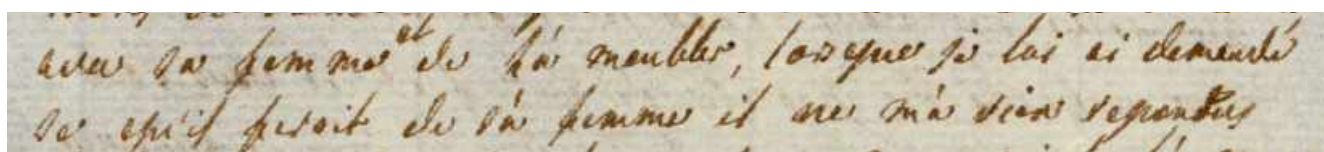 avec sa femme et de sa meubler, lorsque je lui ai demandé
se qu'il feroit de sa femme il ne m'a rien repondus